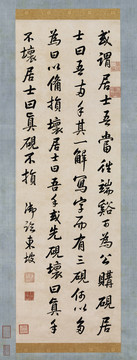 或謂居士吾當往端谿可為公購硯居
士曰吾兩手其一解寫字而有三硯何以多
為曰以備損壞居士曰吾手或先硯壞曰真手
不壞居士曰真硯不損　臨東坡